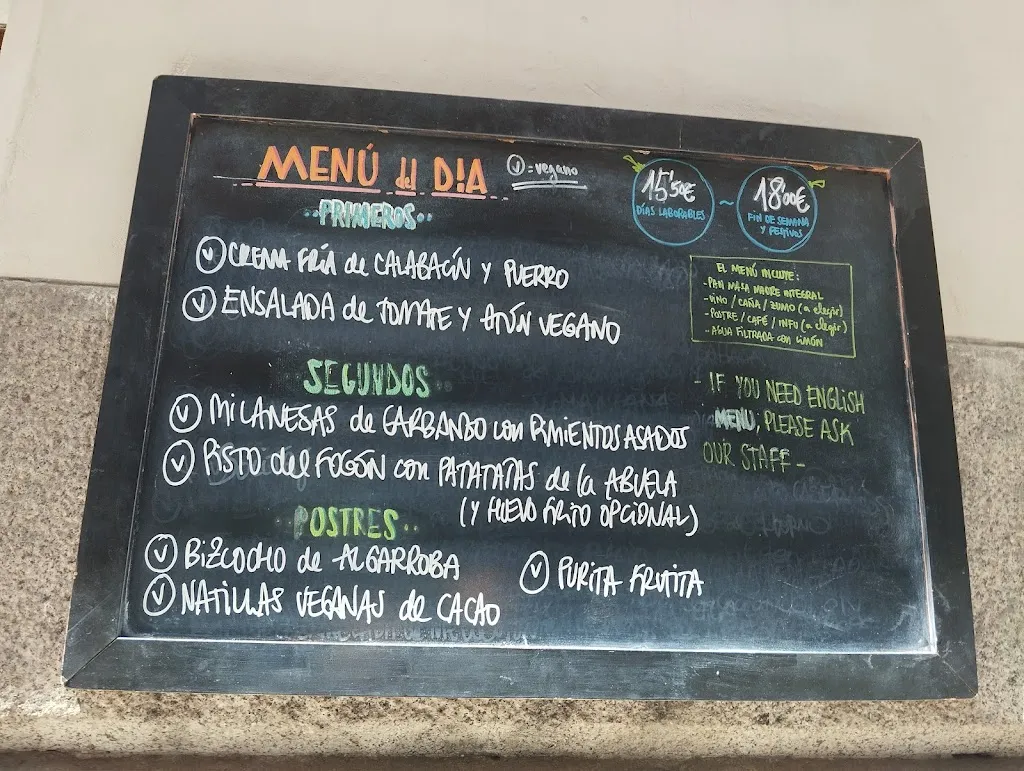 MENÚ del DIA
V = vegano
15'50€
DÍAS LABORABLES
~
18'00€
FIN DE SEMANA
Y FESTIVOS
··PRIMEROS··
V CREMA FRÍA de CALABACÍN Y PUERRO
V ENSALADA de TOMATE Y ATÚN VEGANO
EL MENÚ INCLUYE:
- PAN MASA MADRE INTEGRAL
- VINO / CAÑA / ZUMO (a elegir)
- POSTRE / CAFÉ / INFU (a elegir)
- AGUA FILTRADA CON LIMÓN
SEGUNDOS··
V MILANESAS de GARBANZO con PIMIENTOS ASADOS
V PISTO del FOGÓN con PATATATAS de la ABUELA
(Y HUEVO FRITO OPCIONAL)
- IF YOU NEED ENGLISH
MENU, PLEASE ASK
OUR STAFF -
··POSTRES··
V BIZCOCHO de ALGARROBA
V PURITA FRUTITA
V NATILLAS VEGANAS de CACAO